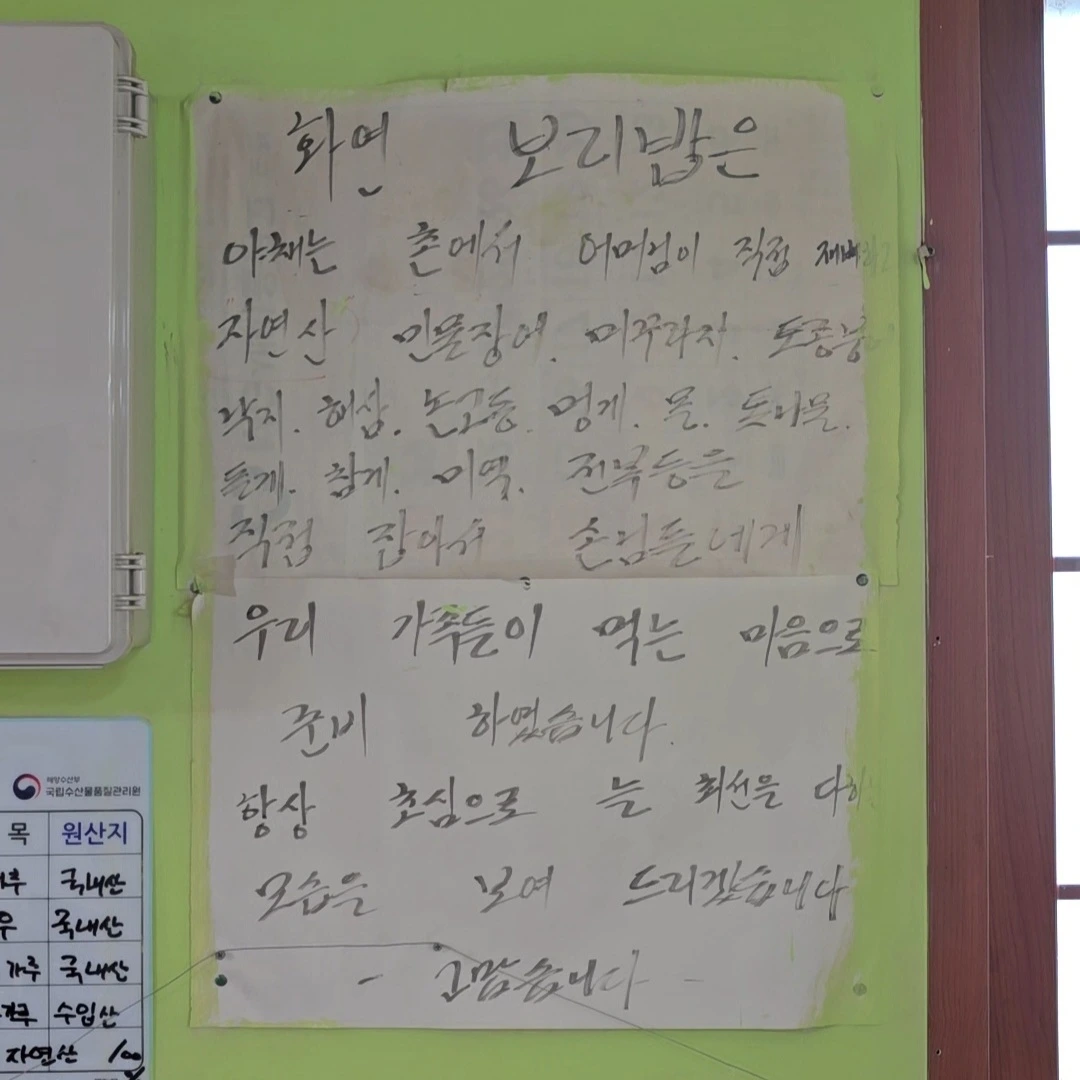 화연 보리밥은
야채는 촌에서 어머님이 직접
자연산 민물장어. 미꾸라지.
낙지. 해삼. 논고동. 멍게. 몰. 톳나물.
돌게. 참게. 미역. 전복등을
직접 잡아서 손님들에게
우리 가족들이 먹는 마음으로
준비 하였습니다.
항상 초심으로 는 최선을
모습을 보여 드리겠습니다
- 고맙습니다 -
해양수산부
국립수산물품질관리원
목 원산지
국내산
국내산
가루 국내산
수입산
자연산 100